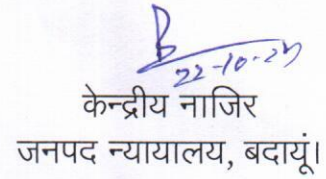 22-10-25
केन्द्रीय नाजिर
जनपद न्यायालय, बदायूं।